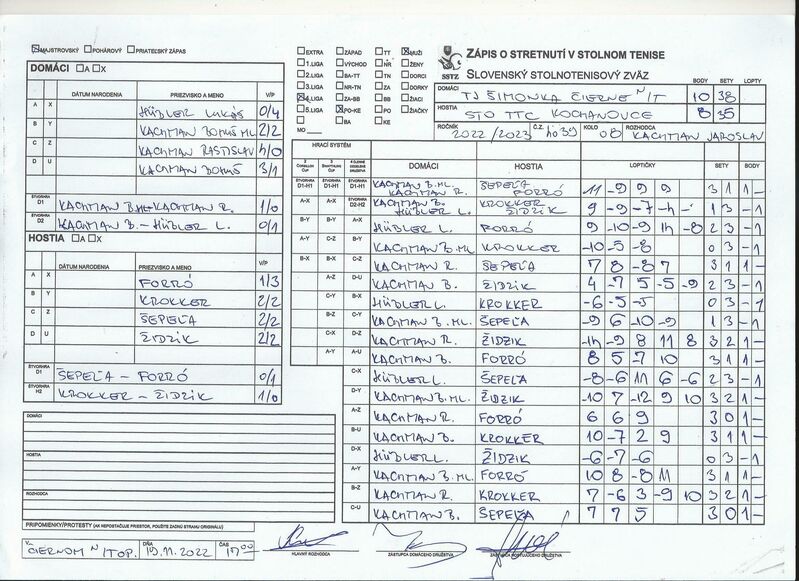 MAJSTROVSKÝ POHÁROVÝ PRIATEĽSKÝ ZÁPAS
EXTRA ZÁPAD TT MUŽI
1.LIGA VÝCHOD NR ŽENY
2.LIGA BA-TT TN DORCI
3.LIGA TN-NR ZA DORKY
4.LIGA ZA-BB BB ŽIACI
5.LIGA PO-KE PO ŽIAČKY
BA KE
MO
SSTZ
ZÁPIS O STRETNUTÍ V STOLNOM TENISE
SLOVENSKÝ STOLNOTENISOVÝ ZVÄZ
BODY SETY LOPTY
DOMÁCI TJ ŠIMONKA ČIERNE N/T 10 38
HOSTIA STO TTC KOCHANOVCE 8 35
ROČNÍK 2022/2023 Č.Z. 4039 KOLO 08 ROZHODCA KACHMAN JAROSLAV
DOMÁCI A X
DÁTUM NARODENIA PRIEZVISKO A MENO V/P
A X HÜBLER LUKÁŠ 0/4
B Y KACHMAN BOHUŠ ML. 2/2
C Z KACHMAN RASTISLAV 4/0
D U KACHMAN BOHUŠ 3/1
ŠTVORHRA D1 KACHMAN B.ML.-KACHMAN R. 1/0
ŠTVORHRA D2 KACHMAN B. - HÜBLER L. 0/1
HOSTIA A X
DÁTUM NARODENIA PRIEZVISKO A MENO V/P
A X FORRÓ 1/3
B Y KROKKER 2/2
C Z ŠEPEĽA 2/2
D U ŽIDZIK 2/2
ŠTVORHRA D1 ŠEPEĽA - FORRÓ 0/1
ŠTVORHRA H2 KROKKER - ŽIDZIK 1/0
HRACÍ SYSTÉM
DOMÁCI HOSTIA LOPTIČKY SETY BODY
ŠTVORHRA D1-H1 ŠTVORHRA D1-H1 ŠTVORHRA D1-H1 KACHMAN B.ML. KACHMAN R. ŠEPEĽA FORRÓ 11 -9 9 9 3 1 1 -
A-X A-X ŠTVORHRA D2-H2 KACHMAN B. HÜBLER L. KROKKER ŽIDZIK 9 -9 -7 -4 1 3 - 1
B-Y B-Y A-X HÜBLER L. FORRÓ 9 -10 -9 14 -8 2 3 - 1
A-Y C-Z B-Y KACHMAN B.ML. KROKKER -10 -5 -8 0 3 - 1
B-X B-X C-Z KACHMAN R. ŠEPEĽA 7 8 -8 7 3 1 1 -
A-Z D-U KACHMAN B. ŽIDZIK 4 -7 5 -5 -9 2 3 - 1
B-Y B-X HÜBLER L. KROKKER -6 -5 -5 0 3 - 1
B-Z C-Y KACHMAN B.ML. ŠEPEĽA -9 6 -10 -9 1 3 - 1
C-X D-Z KACHMAN R. ŽIDZIK -14 -9 8 11 8 3 2 1 -
A-Y A-U KACHMAN B. FORRÓ 8 5 -7 10 3 1 1 -
C-X HÜBLER L. ŠEPEĽA -8 -6 11 6 -6 2 3 - 1
D-Y KACHMAN B.ML. ŽIDZIK -10 7 -12 9 10 3 2 1 -
A-Z KACHMAN R. FORRÓ 6 6 9 3 0 1 -
B-U KACHMAN B. KROKKER 10 -7 2 9 3 1 1 -
D-X HÜBLER L. ŽIDZIK -6 -7 -6 0 3 - 1
A-Y KACHMAN B.ML. FORRÓ 10 8 -8 11 3 1 1 -
B-Z KACHMAN R. KROKKER 7 -6 3 -9 10 3 2 1 -
C-U KACHMAN B. ŠEPEĽA 7 7 5 3 0 1 -
DOMÁCI
HOSTIA
ROZHODCA
PRIPOMIENKY/PROTESTY (AK NEPOSTAČUJE PRIESTOR, POUŽITE ZADNÚ STRANU ORIGINÁLU)
V ČIERNOM N/TOP. DŇA 19.11.2022 ČAS 17 00
HLAVNÝ ROZHODCA ZÁSTUPCA DOMÁCEHO DRUŽSTVA ZÁSTUPCA HOSŤUJÚCEHO DRUŽSTVA